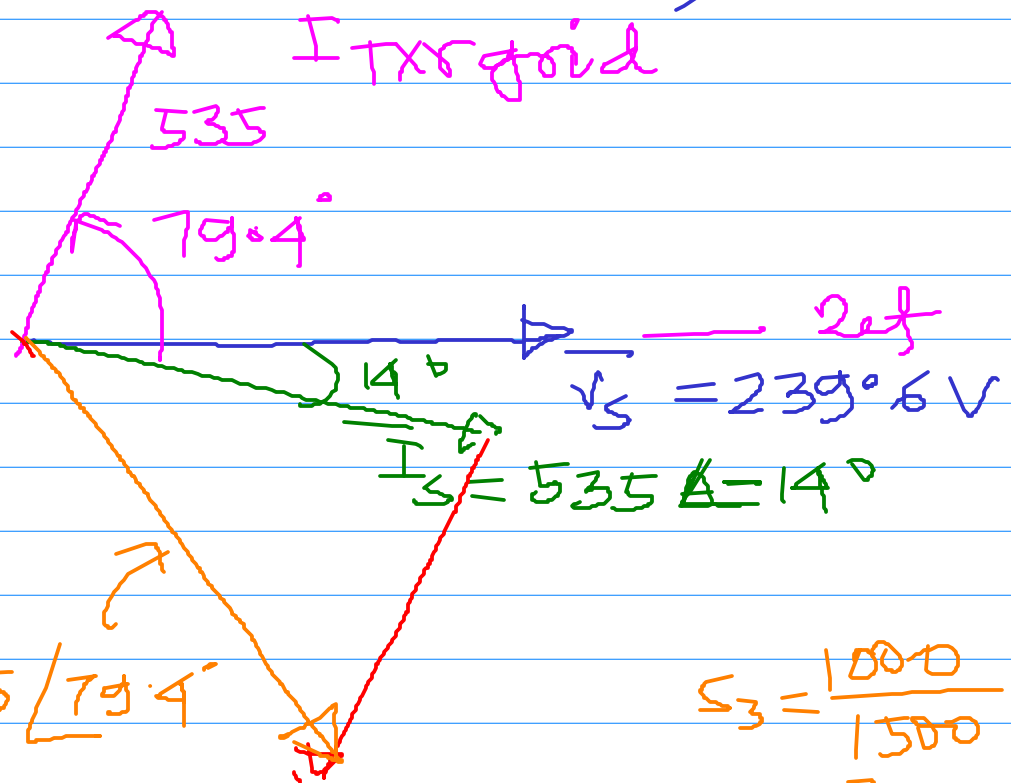 I Txrgrid
535
79.4°
14°
Vs = 239.6 V
Is = 535 ∠-14°
∠79.4°
S3 = 1000
1500